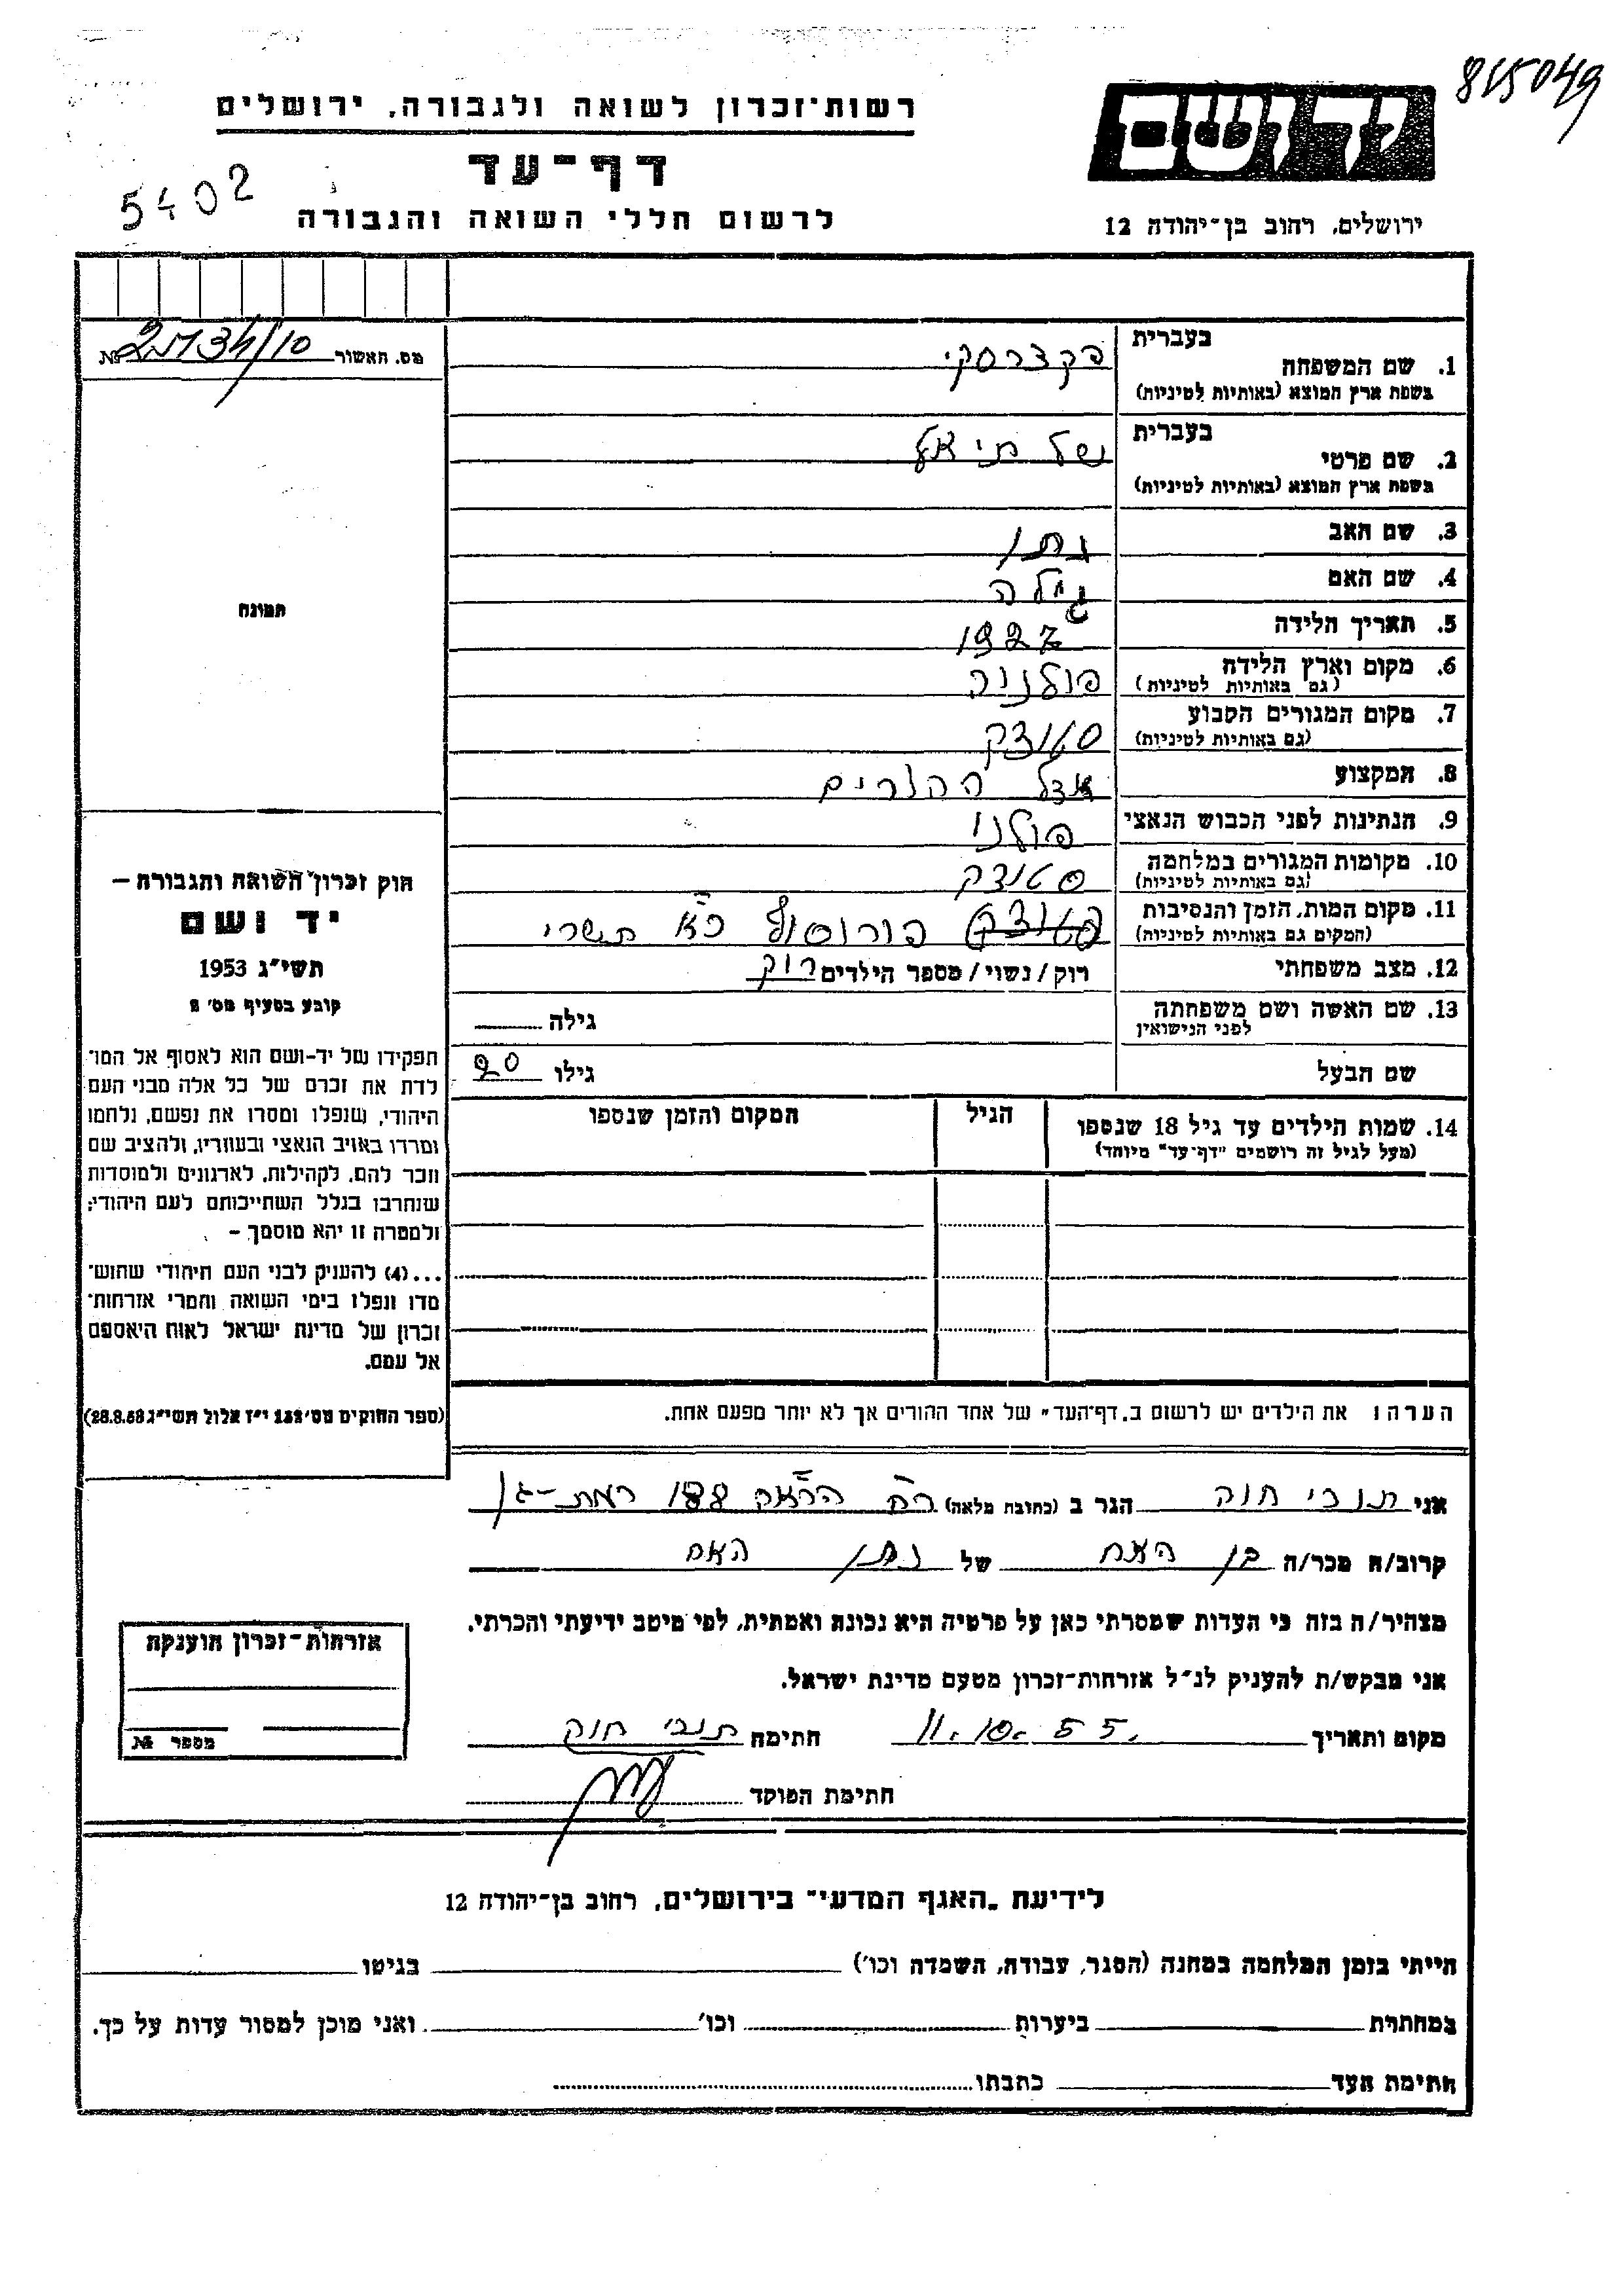 815049
רשות-זכרון לשואה ולגבורה, ירושלים
ידושם
דף-עד
5402
לרשום חללי השואה והגבורה
ירושלים, רחוב בן-יהודה 12
מס. האשור №
בעברית
1. שם המשפחה
בשפת ארץ המוצא (באותיות לטיניות)
בעברית
2. שם פרטי
בשפת ארץ המוצא (באותיות לטיניות)
3. שם האב נתן
4. שם האם גילה
תמונה
5. תאריך הלידה 1927
6. מקום וארץ הלידה פולניה
(גם באותיות לטיניות)
7. מקום המגורים הקבוע סטוצק
(גם באותיות לטיניות)
8. המקצוע אצל ההורים
9. הנתינות לפני הכבוש הנאצי פולני
10. מקומות המגורים במלחמה סטוצק
(גם באותיות לטיניות)
11. מקום המות, הזמן והנסיבות כ"א תשרי
(המקום גם באותיות לטיניות)
12. מצב משפחתי רוק/נשוי/מספר הילדים רוק
13. שם האשה ושם משפחתה גילה
לפני הנישואין
שם הבעל גילו 20
חוק זכרון השואה והגבורה –
יד ושם
תשי"ג 1953
קובע בסעיף מס' 2
תפקידו של יד-ושם הוא לאסוף אל המו־
לדת את זכרם של כל אלה מבני העם
היהודי, שנפלו ומסרו את נפשם, נלחמו
ומרדו באויב הנאצי ובעוזריו, ולהציב שם
וזכר להם, לקהילות, לארגונים ולמוסדות
שנחרבו בגלל השתייכותם לעם היהודי;
ולמטרה זו יהא מוסמך –
...(4) להעניק לבני העם היהודי שהוש־
מדו ונפלו בימי השואה והמרי אזרחות־
זכרון של מדינת ישראל לאות היאספם
אל עמם.
(ספר החוקים מס' 132 י"ז אלול תשי"ג 28.8.53)
14. שמות הילדים עד גיל 18 שנספו הגיל המקום והזמן שנספו
(מעל לגיל זה רושמים "דף-עד" מיוחד)
הערה: את הילדים יש לרשום ב"דף-העד" של אחד ההורים אך לא יותר מפעם אחת.
אני תנובי חוה הגר ב (כתובת מלאה) רח הרא"ה 188 רמת-גן
קרוב/ה מכר/ה בן האח של נתן האח
מצהיר/ה בזה כי העדות שמסרתי כאן על פרטיה היא נכונה ואמתית, לפי מיטב ידיעתי והכרתי.
אני מבקש/ת להעניק לנ"ל אזרחות-זכרון מטעם מדינת ישראל.
מקום ותאריך 11.10.55. חתימה תנובי חוה
חתימת הפוקד
אזרחות-זכרון הוענקה
מספר №
לידיעת "האגף המדעי" בירושלים, רחוב בן-יהודה 12
הייתי בזמן המלחמה במחנה (הסגר, עבודה, השמדה וכו') בגיטו
במחתרת ביערות וכו' ואני מוכן למסור עדות על כך.
חתימת העד כתבתו